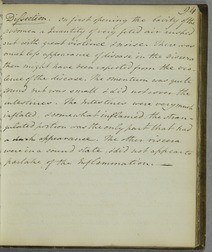 94
Dissection. On first opening the cavity of the
abdomen a quantity of very fetid air rushed
out with great violence & noise. There was
much less appearance of disease in the viscera
than might have been expected from the vio-
lence of the disease. The omentum was quite
sound but was small & did not cover the
intestines. The Intestines were very much
inflated & somewhat inflamed the stran-
gulated portion was the only part that had
a dark appearance. The other viscera
were in a sound state & did not appear to
partake of the Inflammation. —